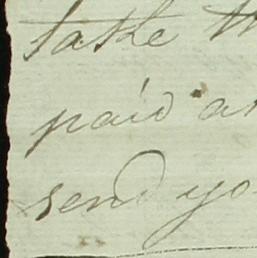 take th
paid an
send yo